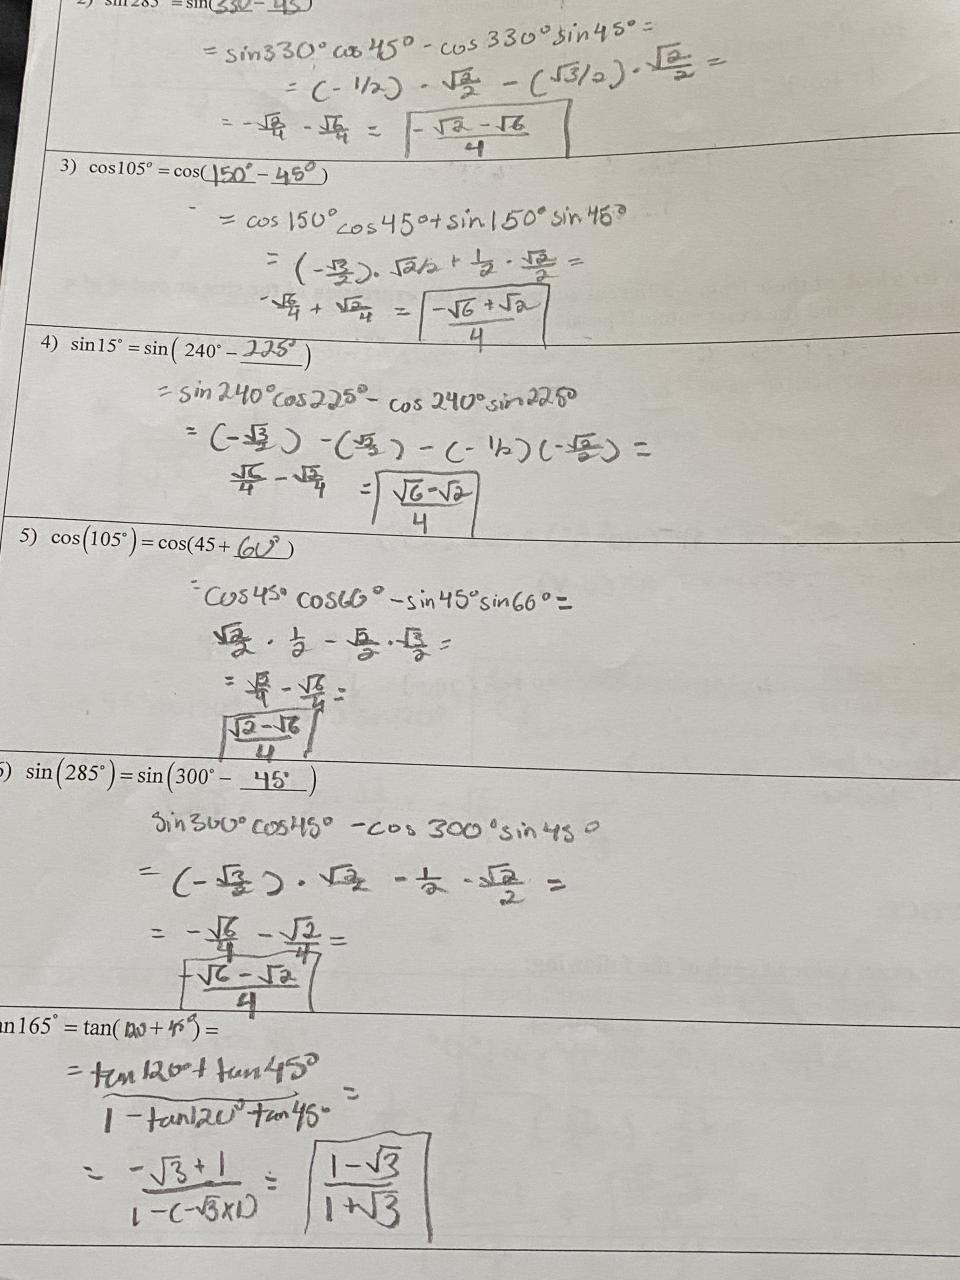 2) sin 285° = sin(330 - 45)
= sin330° cos 45° - cos 330° sin 45° =
= (- 1/2) · √2/2 - (√3/2) · √2/2 =
= -√2/4 - √6/4 = -√2 - √6/4
3) cos105° = cos(150° - 45°)
= cos 150° cos 45° + sin 150° sin 45°
= (-√3/2) · √2/2 + 1/2 · √2/2 =
-√6/4 + √2/4 = -√6 + √2/4
4) sin15° = sin( 240° - 225° )
= sin 240° cos 225° - cos 240° sin 225°
= (-√3/2) -(√2/2) - (- 1/2)(-√2/2) =
√6/4 - √2/4 = √6-√2/4
5) cos(105°) = cos(45 + 60°)
= cos 45° cos60° - sin 45° sin 60° =
√2/2 · 1/2 - √2/2 · √3/2 =
= √2/4 - √6/4 =
√2-√6/4
6) sin(285°) = sin(300° - 45° )
sin 300° cos45° - cos 300° sin 45°
= (-√3/2) · √2/2 - 1/2 - √2/2 =
= -√6/4 - √2/4 =
-√6 - √2/4
an165° = tan(120 + 45°) =
= tan 120° + tan 45°/1 - tan120° tan 45° =
= -√3 + 1/1 - (-√3)(1) = 1-√3/1+√3